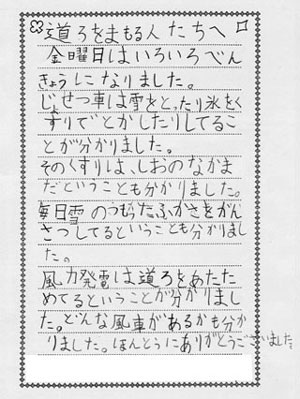 道ろをまもる人たちへ
金曜日はいろいろべん
きょうになりました。
じょせつ車は雪をとったり氷をく
すりでとかしたりしてるこ
とが分かりました。
そのくすりは、しおのなかま
だということも分かりました。
毎日雪のつもったふかさをかん
さつしてるということも分かりまし
た。
風力発電は道ろをあたた
めてるということが分かりまし
た。どんな風車があるかも分か
りました。ほんとうにありがとうございました。